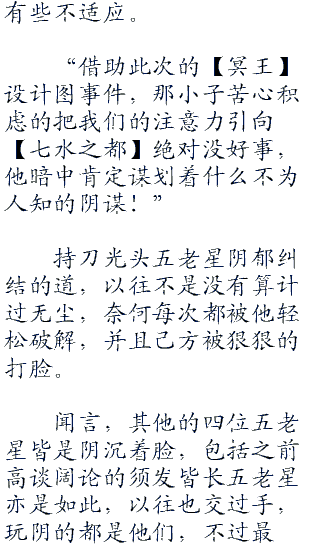 有些不适应。
“借助此次的【冥王】
设计图事件，那小子苦心积
虑的把我们的注意力引向
【七水之都】绝对没好事，
他暗中肯定谋划着什么不为
人知的阴谋！”
持刀光头五老星阴郁纠
结的道，以往不是没有算计
过无尘，奈何每次都被他轻
松破解，并且己方被狠狠的
打脸。
闻言，其他的四位五老
星皆是阴沉着脸，包括之前
高谈阔论的须发皆长五老星
亦是如此，以往也交过手，
玩阴的都是他们，不过最